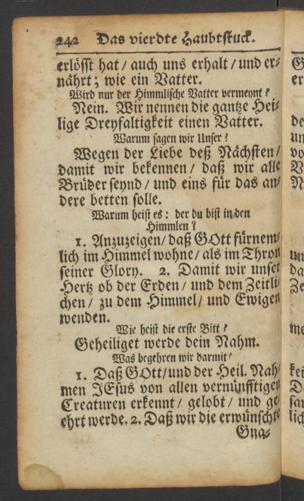 242 Das vierdte Haubtstuck.
erlösst hat / auch uns erhalt / und er-
nährt; wie ein Vatter.
Wird nur der Himmlische Vatter vermeynt?
Nein. Wir nennen die gantze Hei-
lige Dreyfaltigkeit einen Vatter.
Warum sagen wir Unser?
Wegen der Liebe deß Nächsten /
damit wir bekennen / daß wir alle
Brüder seynd / und eins für das an-
dere betten solle.
Warum heist es: der du bist in den
Himmlen?
1. Anzuzeigen / daß GOtt fürnem-
lich im Himmel wohne / als im Thron
seiner Glory. 2. Damit wir unser
Hertz ob der Erden / und dem Zeitli-
chen / zu dem Himmel / und Ewigen
wenden.
Wie heist die erste Bitt?
Geheiliget werde dein Nahm.
Was begehren wir darmit?
1. Daß GOtt / und der Heil. Nah-
men JEsus von allen vernünfftigen
Creaturen erkennt / gelobt / und ge-
ehrt werde. 2. Daß wir die erwünschte
Gna-